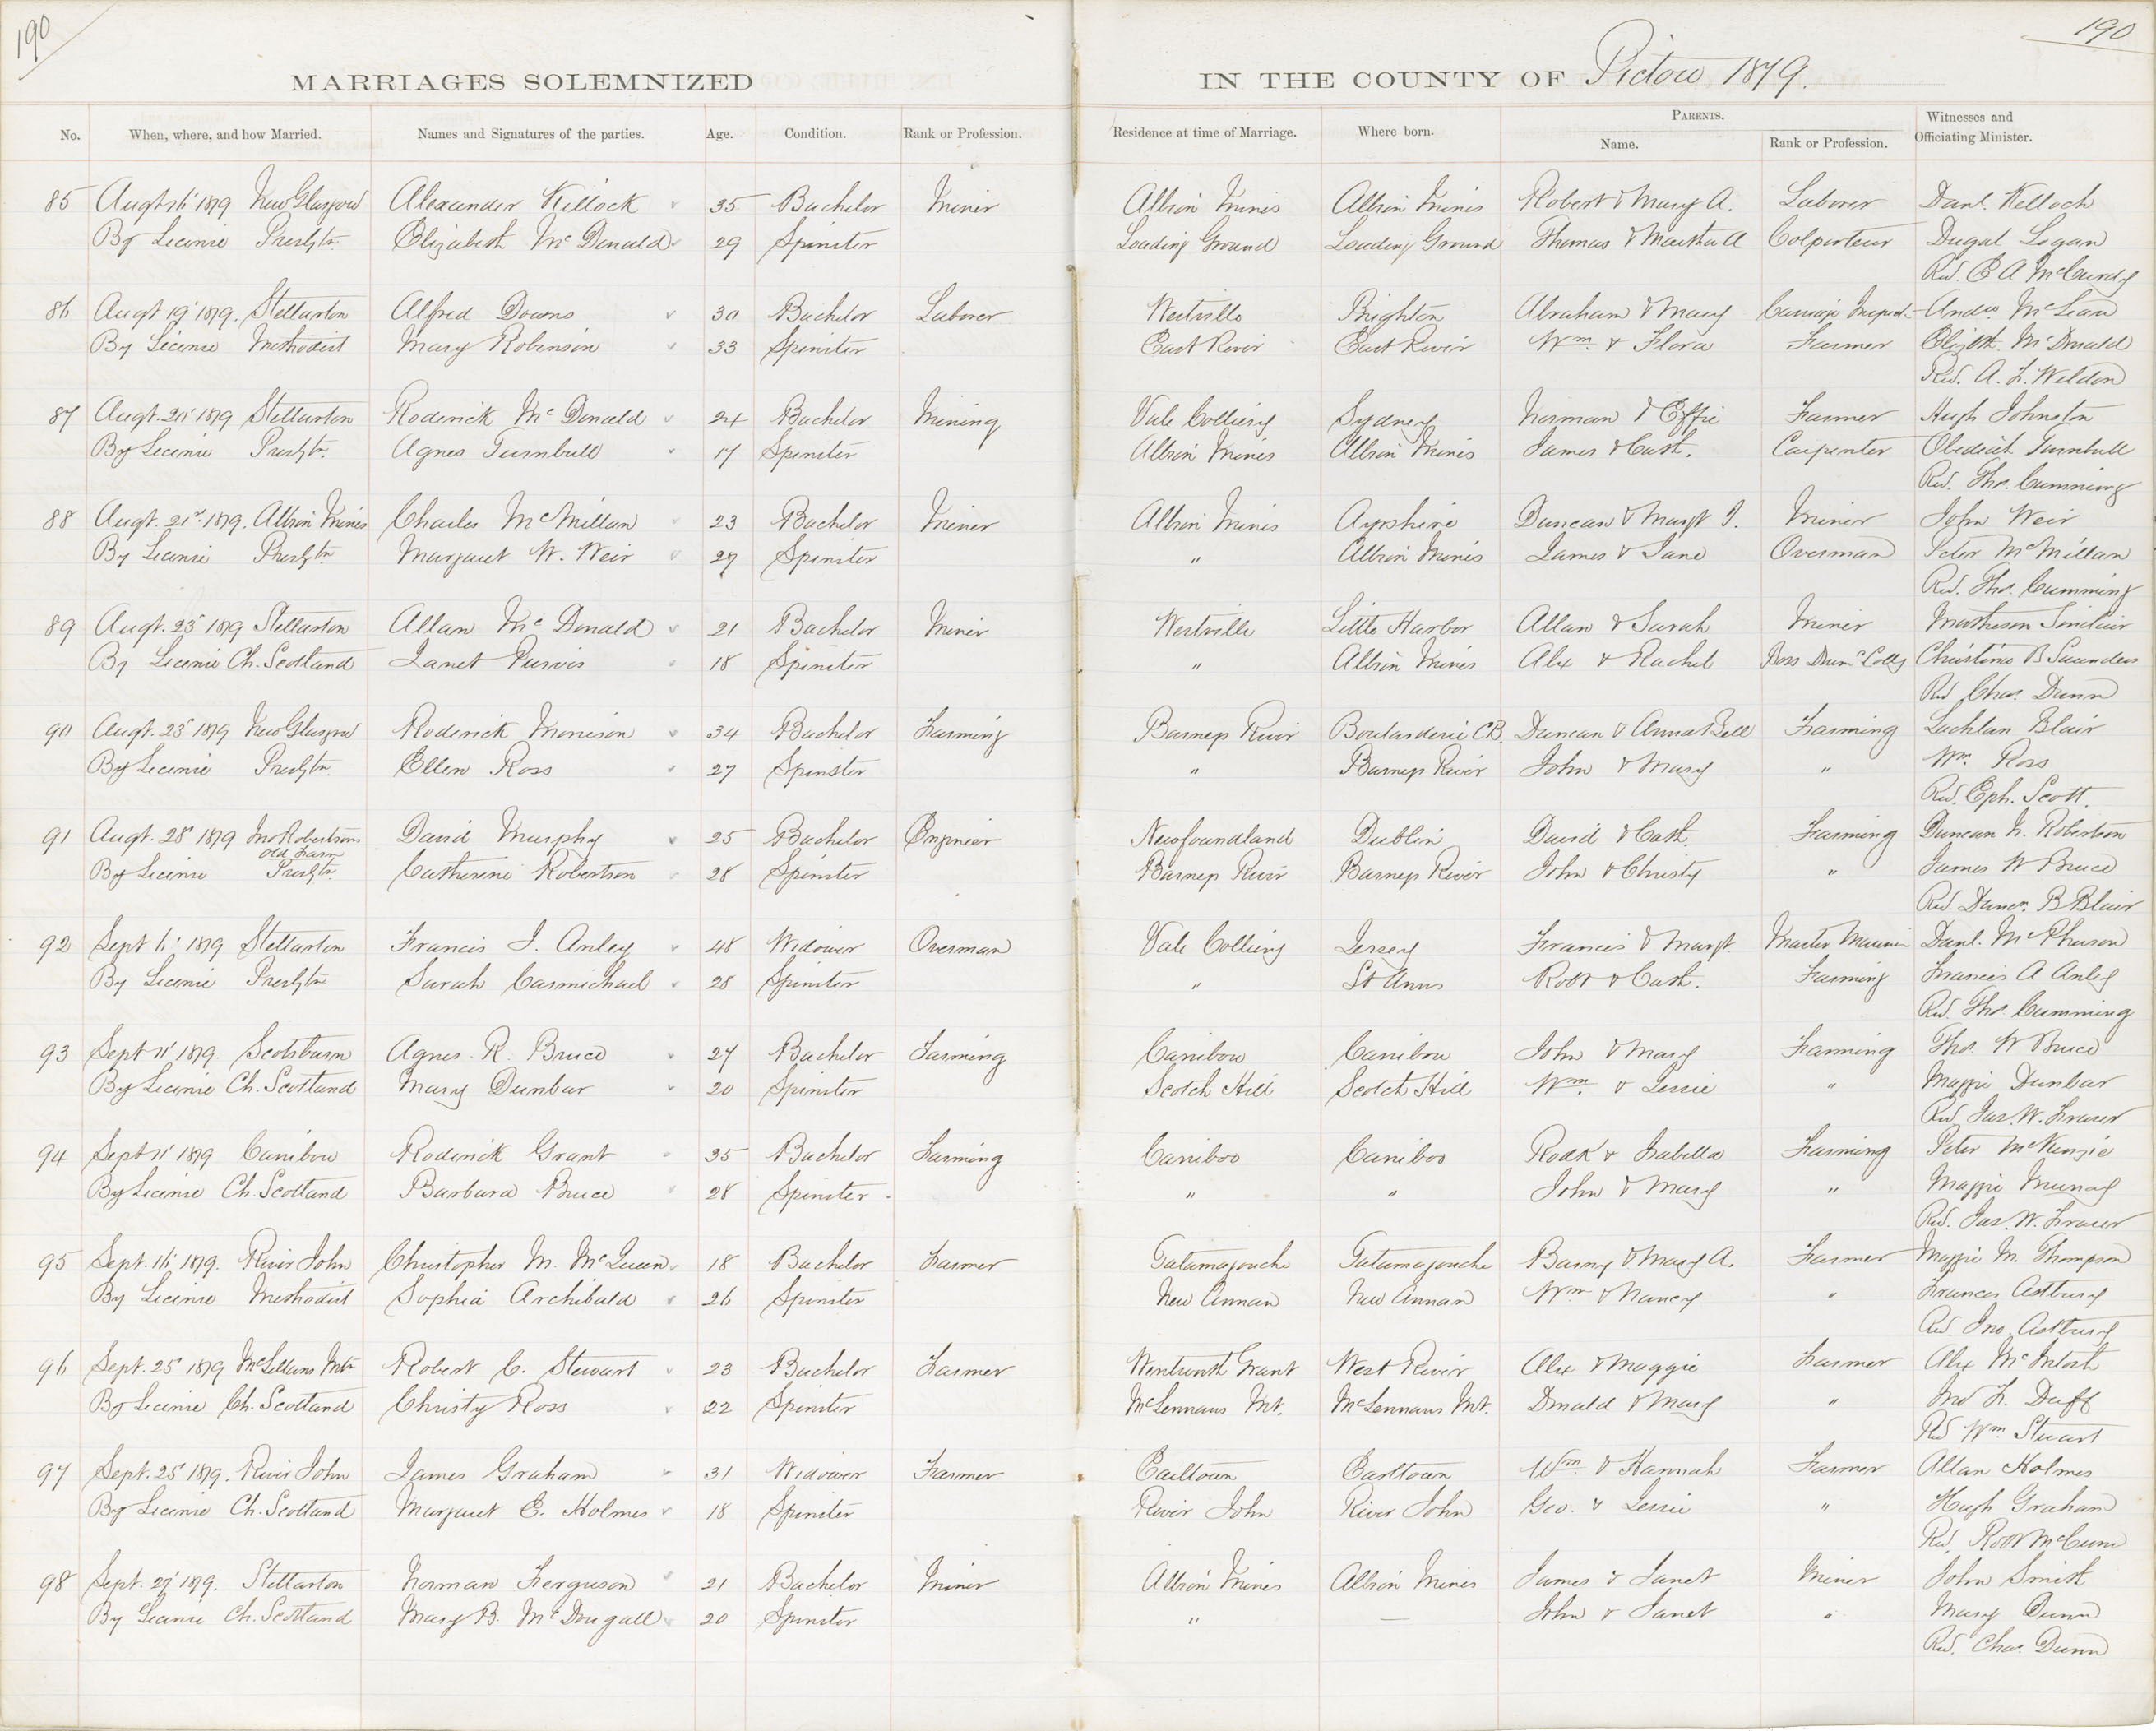 190
190
MARRIAGES SOLEMNIZED IN THE COUNTY OF Pictou 1879.
No. When, where, and how Married. Names and Signatures of the parties. Age. Condition. Rank or Profession. Residence at time of Marriage. Where born. PARENTS. Name. Rank or Profession. Witnesses and Officiating Minister.
85 Augt 16' 1879 New Glasgow Alexander Killock 35 Bachelor Miner Albion Mines Albion Mines Robert & Mary A. Laborer Danl. Kelloch
By License Presbtn. Elizabeth McDonald 29 Spinster Loading Ground Loading Ground Thomas & Martha A Colporteur Dugal Logan
Rev. E A McCurdy
86 Augt 19' 1879. Stellarton Alfred Downs 30 Bachelor Laborer Westville Brighton Abraham & Mary Carriage Inspect. Andw. McLean
By License Methodist Mary Robinson 33 Spinster East River East River Wm. & Flora Farmer Elizbth. McDonald
Rev. A. F. Weldon
87 Augt. 20' 1879 Stellarton Roderick McDonald 24 Bachelor Mining Vale Colliery Sydney Norman & Effie Farmer Hugh Johnston
By License Presbtn. Agnes Turnbull 17 Spinster Albion Mines Albion Mines James & Cath. Carpenter Obediah Turnbull
Rev. Tho. Cumming
88 Augt. 21st. 1879. Albion Mines Charles McMillan 23 Bachelor Miner Albion Mines Ayrshire Duncan & Margt J. Miner John Weir
By License Presbtn. Margaret W. Weir 27 Spinster " Albion Mines James & Jane Overman Peter McMillan
Rev. Tho. Cumming
89 Augt. 23' 1879 Stellarton Allan McDonald 21 Bachelor Miner Westville Little Harbor Allan & Sarah Miner Matheson Sinclair
By License Ch. Scotland Janet Purvis 18 Spinster " Albion Mines Alex & Rachel Boss Drumd. Colly Christina B Saunders
Rev Chas. Dunn
90 Augt. 23' 1879 New Glasgow Roderick Morrison 34 Bachelor Farming Barneys River Boularderie CB. Duncan & Anna Bell Farming Lachlan Blair
By License Presbtn. Ellen Ross 27 Spinster " Barneys River John & Mary " Wm. Ross
Rev. Eph. Scott.
91 Augt. 28' 1879 Jno Robertsons Old Farm David Murphy 25 Bachelor Engineer Newfoundland Dublin David & Cath. Farming Duncan N. Robertson
By License Presbtn. Catherine Robertson 28 Spinster Barneys River Barneys River John & Christy " James W Bruce
Rev. Duncn. B Blair
92 Sept 6' 1879 Stellarton Francis J. Anley 48 Widower Overman Vale Colliery Jersey Francis & Margt. Master Mariner Danl. McPherson
By License Presbtn Sarah Carmichael 28 Spinster " St Anns Robt & Cath. Farming Francis A Anley
Rev. Tho. Cumming
93 Sept 11' 1879. Scotsburn Agnes. R. Bruce 27 Bachelor Farming Caribou Caribou John & Mary Farming Thos. W Bruce
By License Ch. Scotland Mary Dunbar 20 Spinster Scotch Hill Scotch Hill Wm. & Jessie " Maggie Dunbar
Rev. Jas. W. Fraser
94 Sept 11' 1879 Caribou Roderick Grant 35 Bachelor Farming Cariboo Cariboo Rodk & Isabella Farming Peter McKenzie
By License Ch. Scotland Barbara Bruce 28 Spinster " " John & Mary " Maggie Murray
Rev. Jas. W. Fraser
95 Sept. 16' 1879. River John Christopher M. McQueen 18 Bachelor Farmer Tatamagouche Tatamagouche Barny & Mary A. Farmer Maggie M. Thompson
By License Methodist Sophia Archibald 26 Spinster New Annan New Annan Wm & Nancy " Frances Astbury
Rev. Jno. Astbury
96 Sept. 25' 1879 McLellans Mtn Robert C. Stewart 23 Bachelor Farmer Wentworth Grant West River Alex & Maggie Farmer Alex McIntosh
By License Ch. Scotland Christy Ross 22 Spinster McLennans Mt. McLennans Mt. Donald & Mary " Jno F. Duff
Rev Wm. Stuart
97 Sept. 25' 1879. River John James Graham 31 Widower Farmer Earltown Earltown Wm. & Hannah Farmer Allan Holmes
By License Ch. Scotland Margaret E. Holmes 18 Spinster River John River John Geo. & Jessie " Hugh Graham
Rev. Robt McCunn
98 Sept. 27' 1879. Stellarton Norman Ferguson 21 Bachelor Miner Albion Mines Albion Mines James & Janet Miner John Smith
By License Ch. Scotland Mary B. McDougall 20 Spinster " — John & Janet " Mary Dunn
Rev. Chas. Dunn